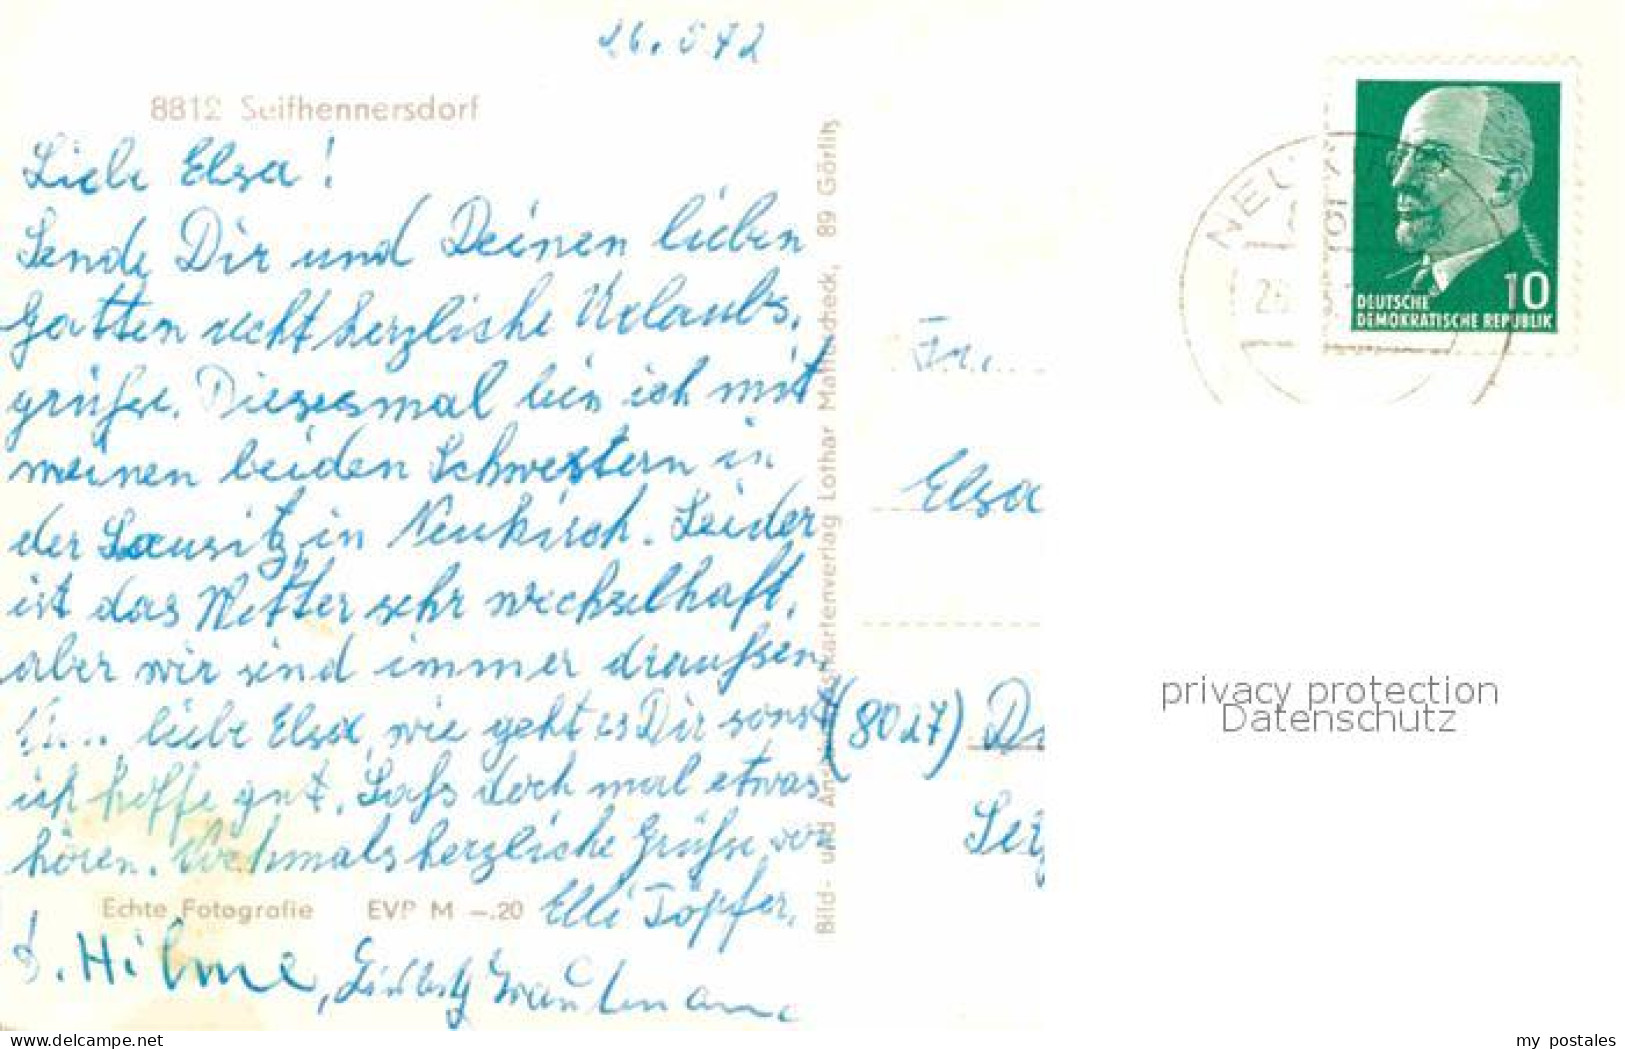 26.572
8812 Seifhennersdorf
Liebe Elsa!
Sende Dir und Deinen lieben
Gatten recht herzliche Urlaubs,
grüße. Diesesmal bin ich mit
meinen beiden Schwestern in
der Lausitz, in Neukirch. Leider
ist das Wetter sehr wechselhaft,
aber wir sind immer draußen,
liebe Elsa, wie geht es Dir sonst
ich hoffe gut. Laß doch mal etwas
hören. Nochmals herzliche Grüße von
Elli Töpfer.
Echte Fotografie EVP M –.20
Hilme,
Bild- und Ansichtskartenverlag Lothar 89 Görlitz
DEUTSCHE
DEMOKRATISCHE REPUBLIK
10
NEU
Fr.
Elsa
(8027) D
privacy protection
Datenschutz
my_postales
www.delcampe.net